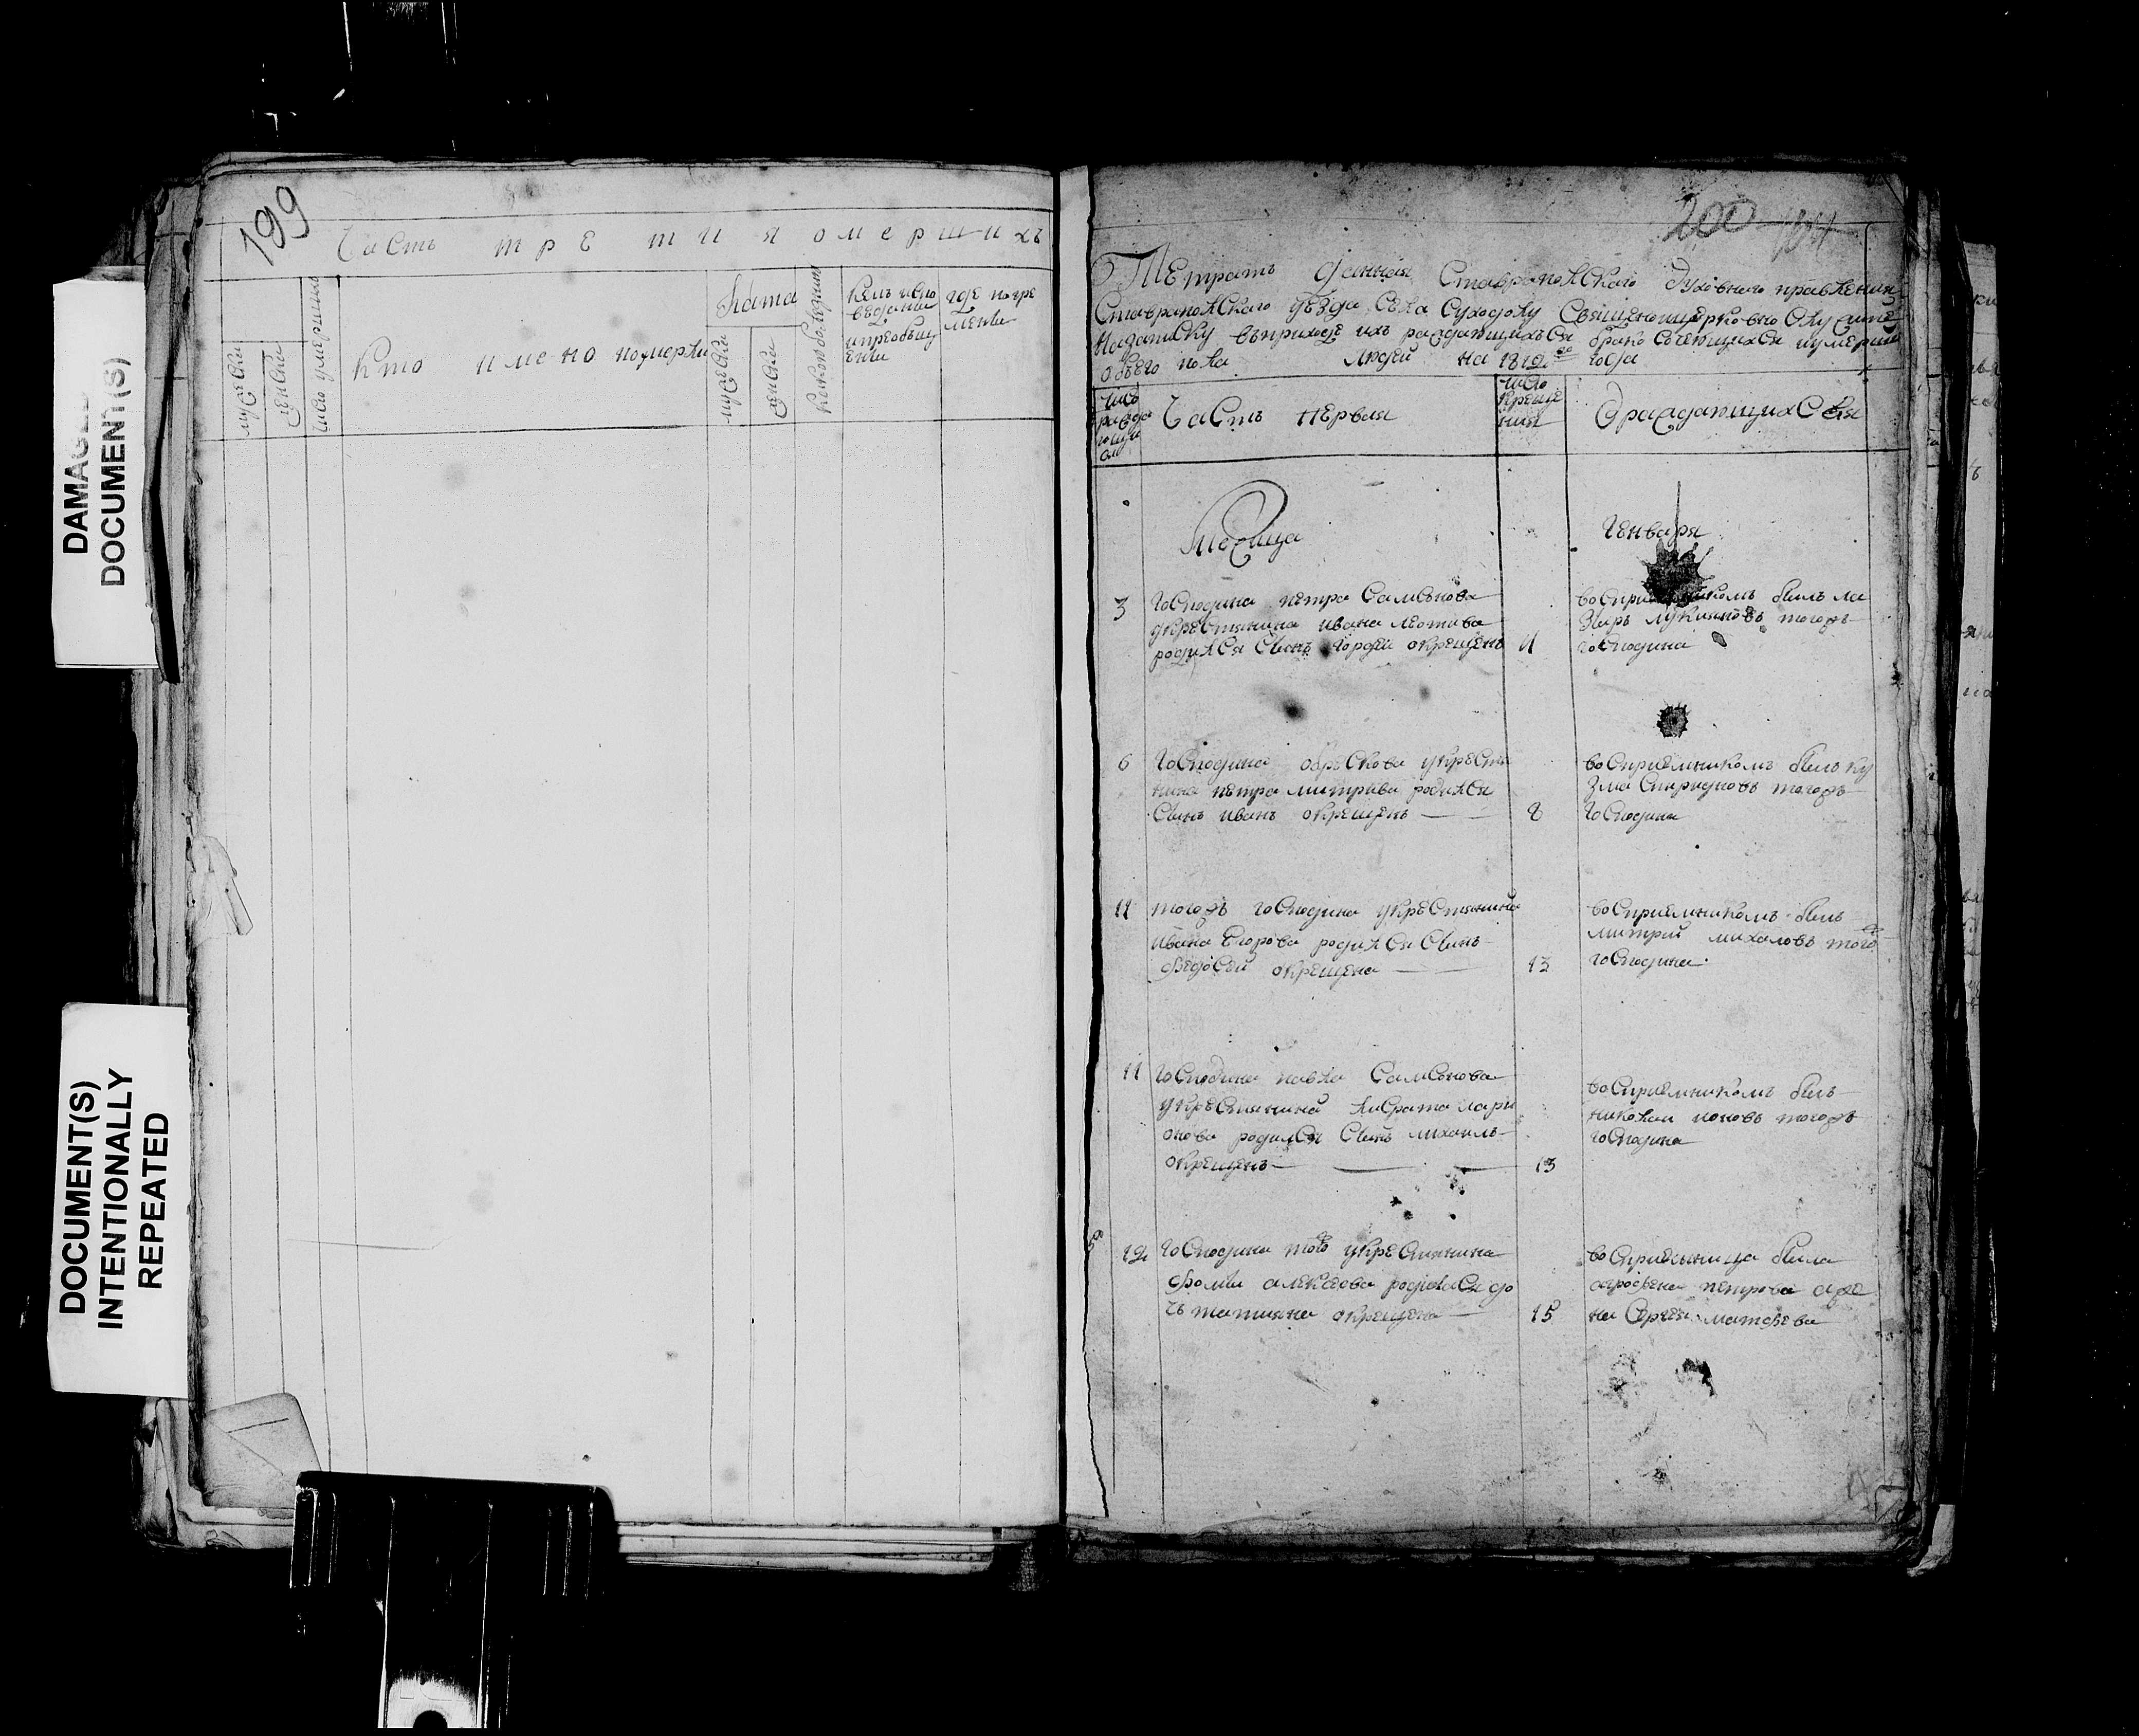 DAMAGED
DOCUMENT(S)
DOCUMENT(S)
INTENTIONALLY
REPEATED
199
Часть третия омерших
мужески
женски
число умерших
Кто имено померли
Лета
мужески
женски
какою болезнию
кемъ испо
веданы
и приобъщ
ены
где погре
бены
200
Тетрать данная Ставропольскаго духовнаго правления
Ставропольскаго уезда села Суходолу Священоцерковно служите
на записку въприходе ихъ раждающихъся брако сочетющихся иумерши
обоего пола людей на 1812 го года
число
ражда
ющи
Часть первая
число
креще
ния
Ораждающихся
Месяца
Генваря
3
господина петра Самсонова
укрестянина ивана
родился Сынъ гордей окрещенъ
восприемникомъ былъ ла
зарь лукияновъ тогожъ
господина
6
господина обрескова укрестя
нина петра митрива родился
Сынъ иванъ окрещенъ
8
восприемникомъ былъ ку
зма Спиридоновъ тогожъ
господина
11
тогожъ господина укрестянина
ивана Егорова родился Сынъ
федосей окрещена
13
восприемникомъ былъ
митрий михаловъ тогожъ
господина
11
господина павла Самсонова
укрестянина лари
онова родился Сынъ михаилъ
окрещенъ
13
восприемникомъ былъ
николаи ионовъ тогожъ
господина
12
господина тогожъ укрестянина
фомы алексеева родилася до
чъ татияна окрещена
15
восприемница была
агрофена петрова жа
на Сергея матфева